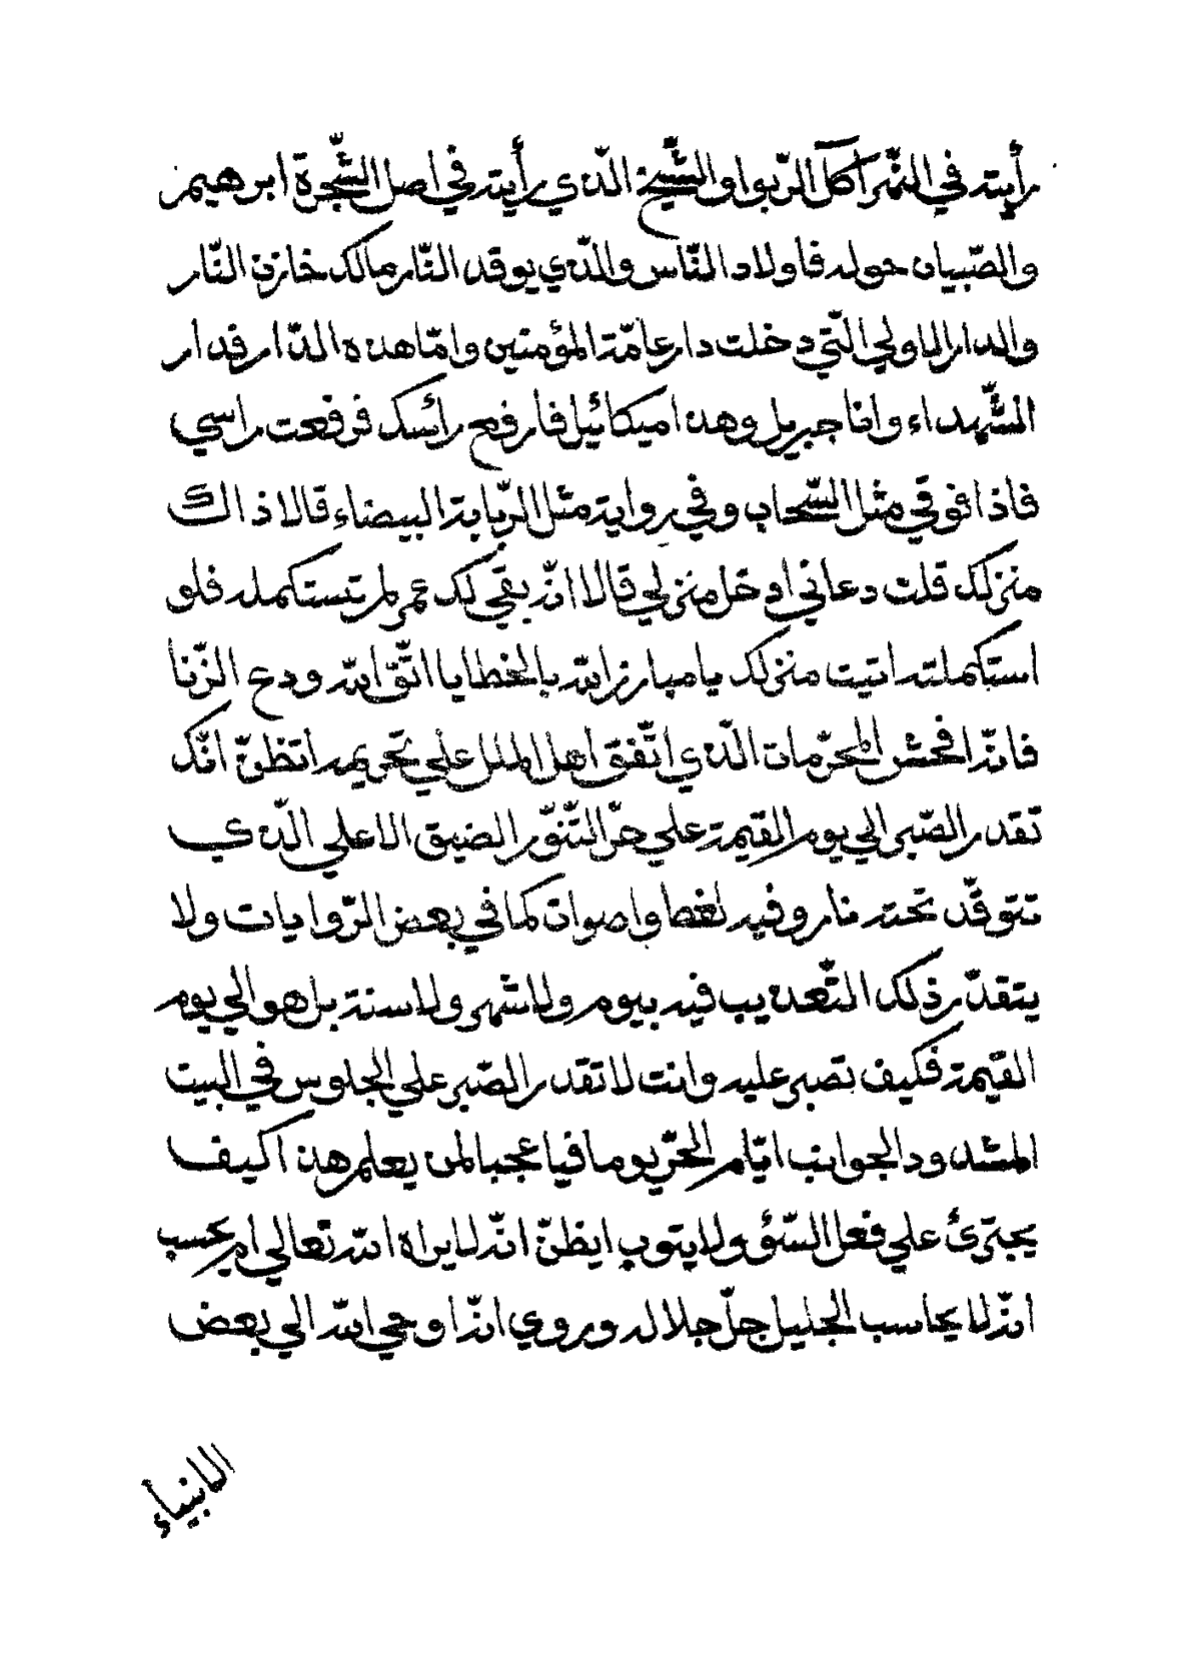 رأيته في النّهر آكل الرّبوا والشّيخ الّذي رأيته في اصل الشّجرة ابرهيم
والصّبيان حوله فاولاد النّاس والّذي يوقد النّار مالك خازن النّار
والدار الاولي الّتي دخلت دار عامّة المؤمنين وامّا هذه الدّار فدار
الشّهداء وانا جبريل وهذا ميكائيل فارفع رأسك فرفعت راسي
فاذا فوقي مثل السّحاب وفي رواية مثل الرّبابة البيضاء قالا ذاك
منزلك قلت دعاني ادخل منزلي قالا انّه بقي لك عمر لم تستكمله فلو
استكملته اتيت منزلك يا مبارز الله بالخطايا اتّق الله ودع الزّنا
فانّه افحش المحرّمات الّذي اتّفق اهل الملل علي تحريمه اتظنّ انّك
تقدر الصّبر الي يوم القيمة علي حرّ التّنوّر الضيق الاعلي الّذي
تتوقّد تحته نار وفيه لغط واصوات كما في بعض الرّوايات ولا
يتقدّر ذلك التّعذيب فيه بيوم ولا شهر ولا سنة بل هو الي يوم
القيمة فكيف تصبر عليه وانت لا تقدر الصّبر علي الجلوس في البيت
المشدود الجوانب ايّام الحرّ يوما فيا عجبا لمن يعلم هذا كيف
يجترئ علي فعل السّؤ ولا يتوب ايظنّ انّه لا يراه الله تعالي ام يحسب
انّه لا يحاسب الجليل جلّ جلاله وروي انّه اوحي الله الي بعض
الانبياء